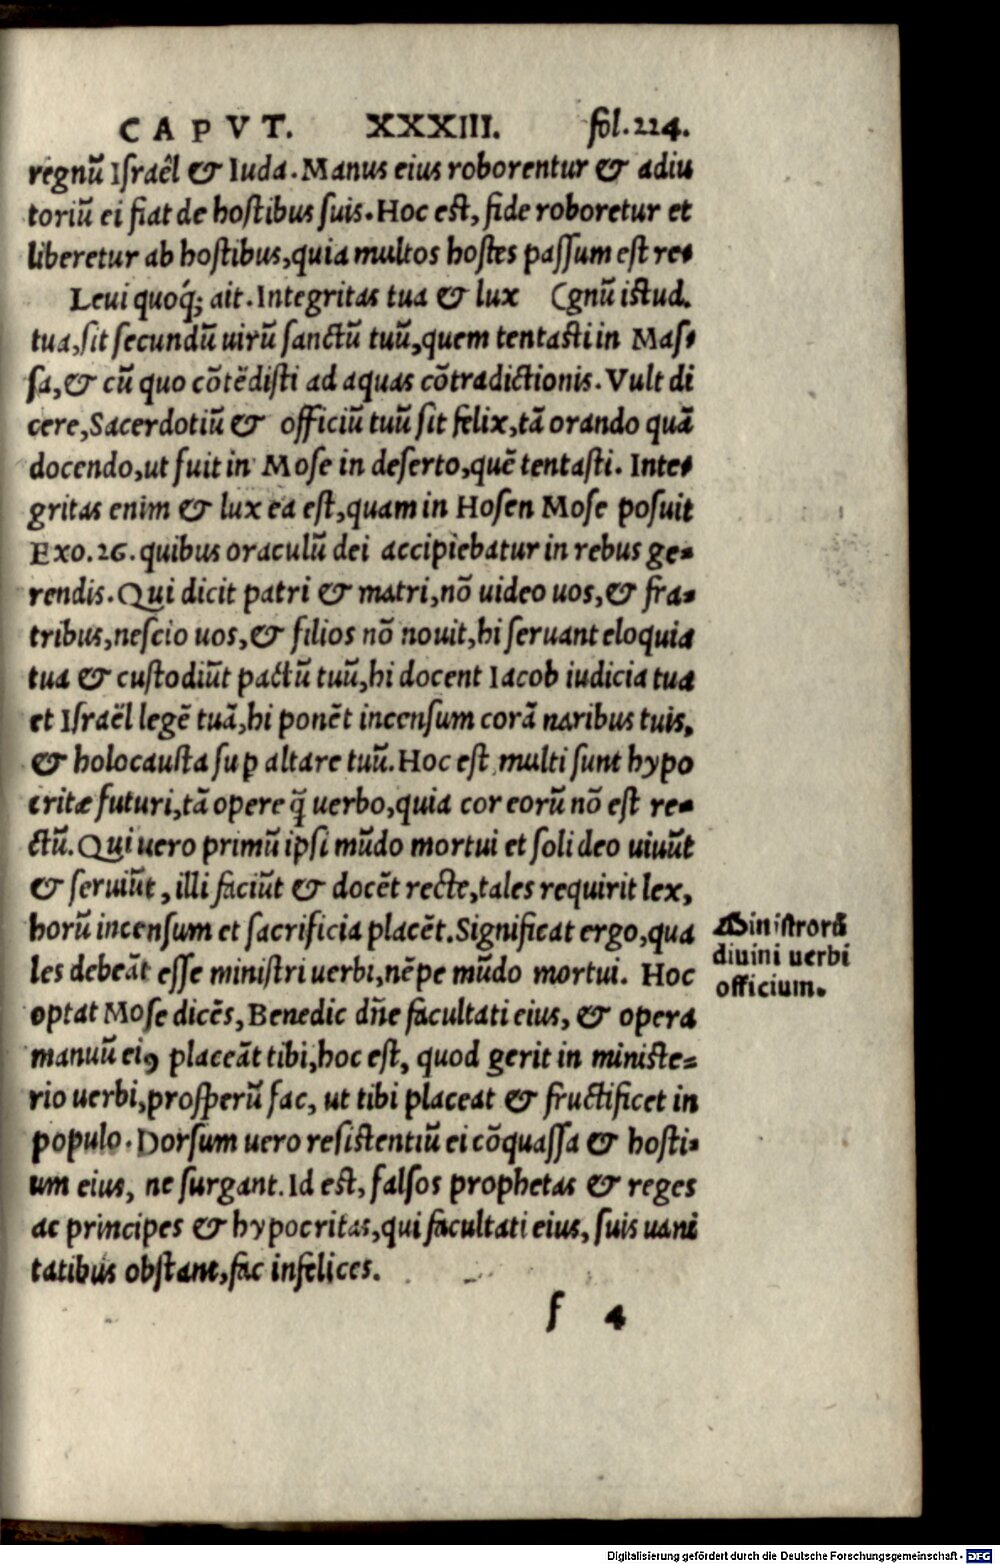 CAPVT. XXXIII. fol.224.
regnũ Iſraêl & Iuda. Manus eius roborentur & adiu
toriũ ei fiat de hoſtibus ſuis. Hoc eſt, fide roboretur et
liberetur ab hoſtibus, quia multos hoſtes paſſum eſt re-
Leui quoq́; ait. Integritas tua & lux (gnũ iſtud.
tua, ſit ſecundũ uirũ ſanctũ tuũ, quem tentaſti in Maſ-
ſa, & cũ quo cõtẽdiſti ad aquas cõtradictionis. Vult di
cere, Sacerdotiũ & officiũ tuũ ſit felix, tã orando quã
docendo, ut fuit in Moſe in deſerto, quẽ tentaſti. Inte-
gritas enim & lux ea eſt, quam in Hoſen Moſe poſuit
Exo. 26. quibus oraculũ dei accipiebatur in rebus ge-
rendis. Qui dicit patri & matri, nõ uideo uos, & fra-
tribus, neſcio uos, & filios nõ nouit, hi ſeruant eloquia
tua & cuſtodiũt pactũ tuũ, hi docent Iacob iudicia tua
et Iſraël legẽ tuã, hi ponẽt incenſum corã naribus tuis,
& holocauſta ſuꝑ altare tuũ. Hoc eſt multi ſunt hypo
critæ futuri, tã opere q̃ uerbo, quia cor eorũ nõ eſt re-
ctũ. Qui uero primũ ipſi mũdo mortui et ſoli deo uiuũt
& ſeruiũt, illi faciũt & docẽt recte, tales requirit lex,
horũ incenſum et ſacrificia placẽt. Significat ergo, qua
les debeãt eſſe miniſtri uerbi, nẽpe mũdo mortui. Hoc
optat Moſe dicẽs, Benedic dñe facultati eius, & opera
manuũ eiꝰ placeãt tibi, hoc eſt, quod gerit in miniſte-
rio uerbi, proſperũ fac, ut tibi placeat & fructificet in
populo. Dorſum uero reſiſtentiũ ei cõquaſſa & hoſti-
um eius, ne ſurgant. Id eſt, falſos prophetas & reges
ac principes & hypocritas, qui facultati eius, ſuis uani
tatibus obſtant, fac infelices.
f 4
Miniſtrorũ
diuini uerbi
officium.
Digitalisierung gefördert durch die Deutsche Forschungsgemeinschaft - DFG